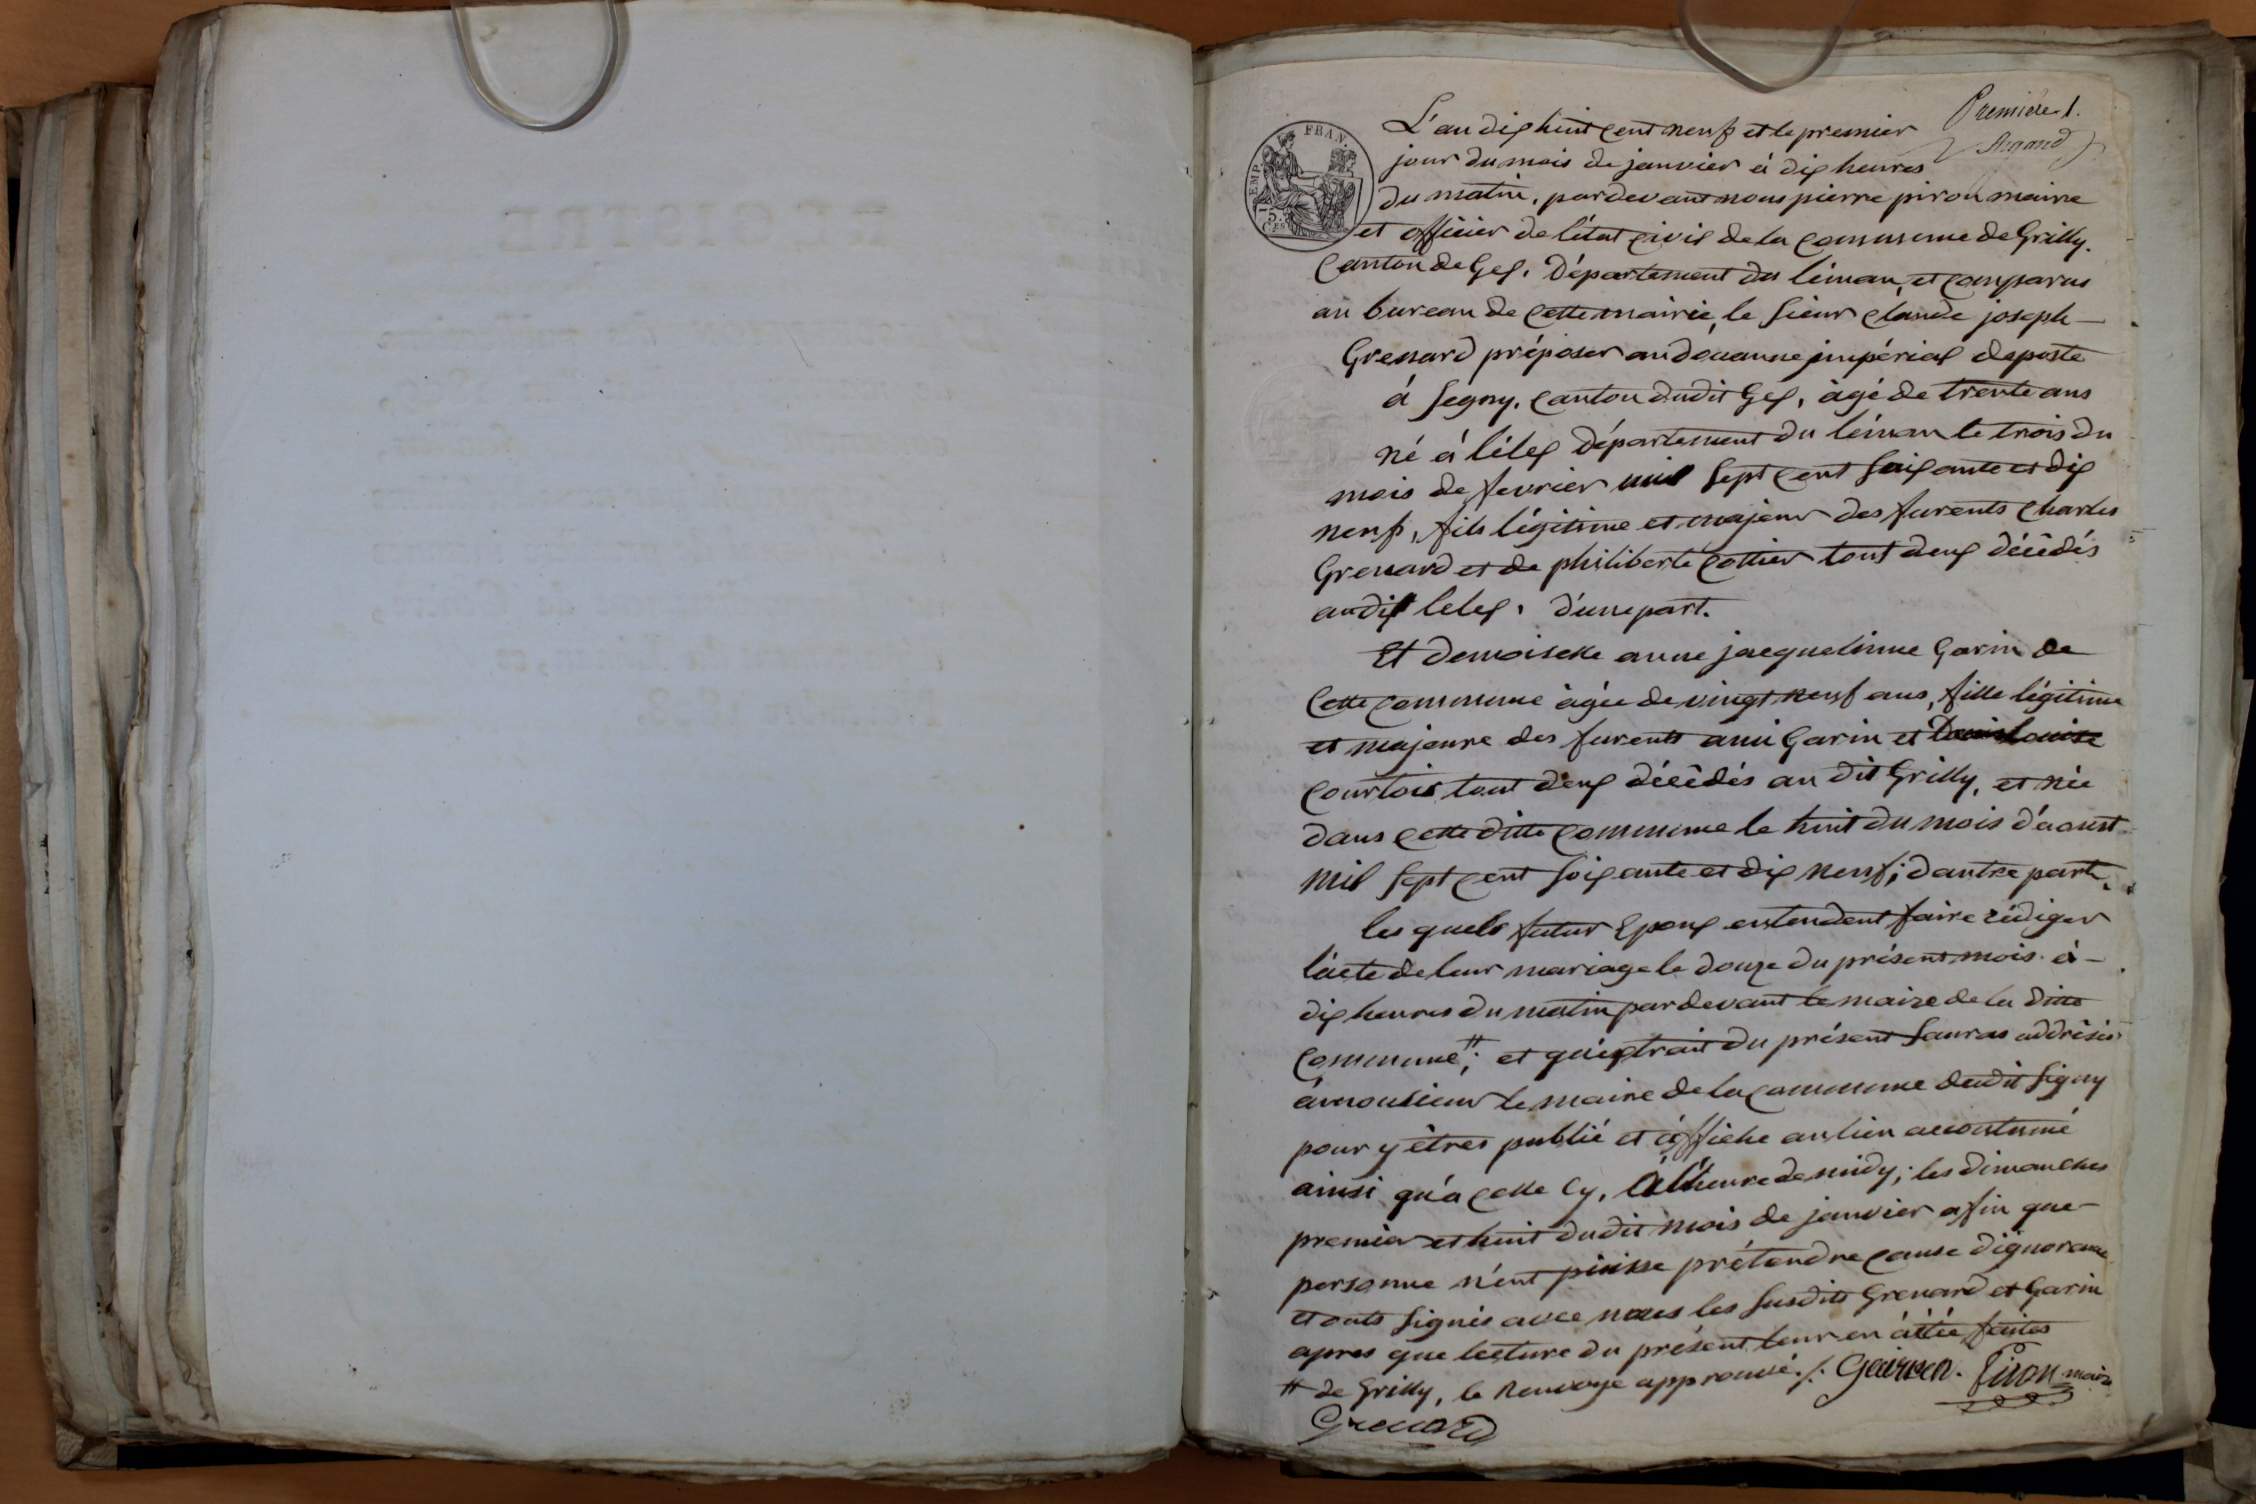 Premiere 1.
Argand
EMP. FRAN.
75.
L'an dix huit cent neuf et le premier
jour du mois de janvier à dix heures
du matin, pardevant nous pierre piron maire
et officier de l'état civil de la commune de Grilly.
Canton de Gex, Département du léman, et comparus
au bureau de cette mairie, le sieur claude joseph
Grenard préposer au douanne jmpérial deposte
á segny, canton dudit Gex, àgé de trente ans
né á lélex département du léman le trois du
mois de fevrier mil sept cent soixante et dix
neuf, fils légitime et majeur des furents charles
Grenard et de philiberte cottier tout deux décèdés
audit lelex, d'une part.
Et demoiselle anne jacquelinne Garin de
cette commune àgée de vingt neuf ans, fille légitime
et majeure des furents ami Garin et Louise
courtois tout deux décèdés au dit Grilly, et née
dans cette ditte commune le huit du mois d'aoust
mil sept cent soixante et dix neuf; d'autre part.
les quels futur Epoux entendent faire rédiger
lácte de leur mariage le douze du présent mois á
dix heures du matin pardevant le maire de la ditte
commune #; et qu'extrait du présent sauras addrésés
ámonsieur le maire de la commune dudit signy
pour y êtres publié et áffiche au lieu accoutumé
ainsi qu'a celle cy, à l'heure de midy; les dimanches
premier et huit dudit mois de janvier afin que
personne n'ent puisse prétendre cause d'ignorance
et onts signés avec nous les susdits Grenard et Garin
apres que lecture du présent leur en áétée faites
# de Grilly, le renvoye approuvé ./. Piron maire
Grenard